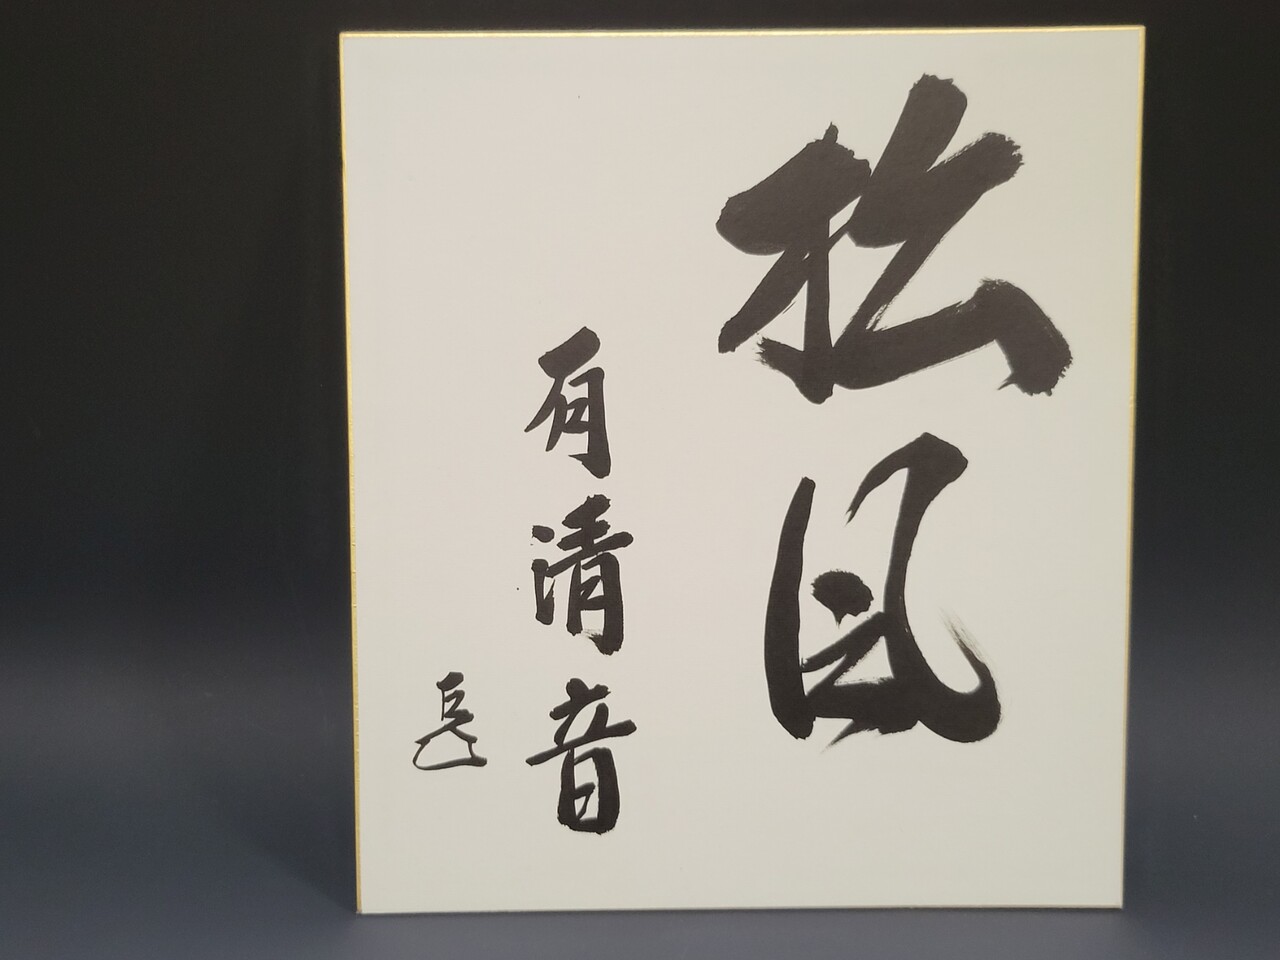 松風
有清音